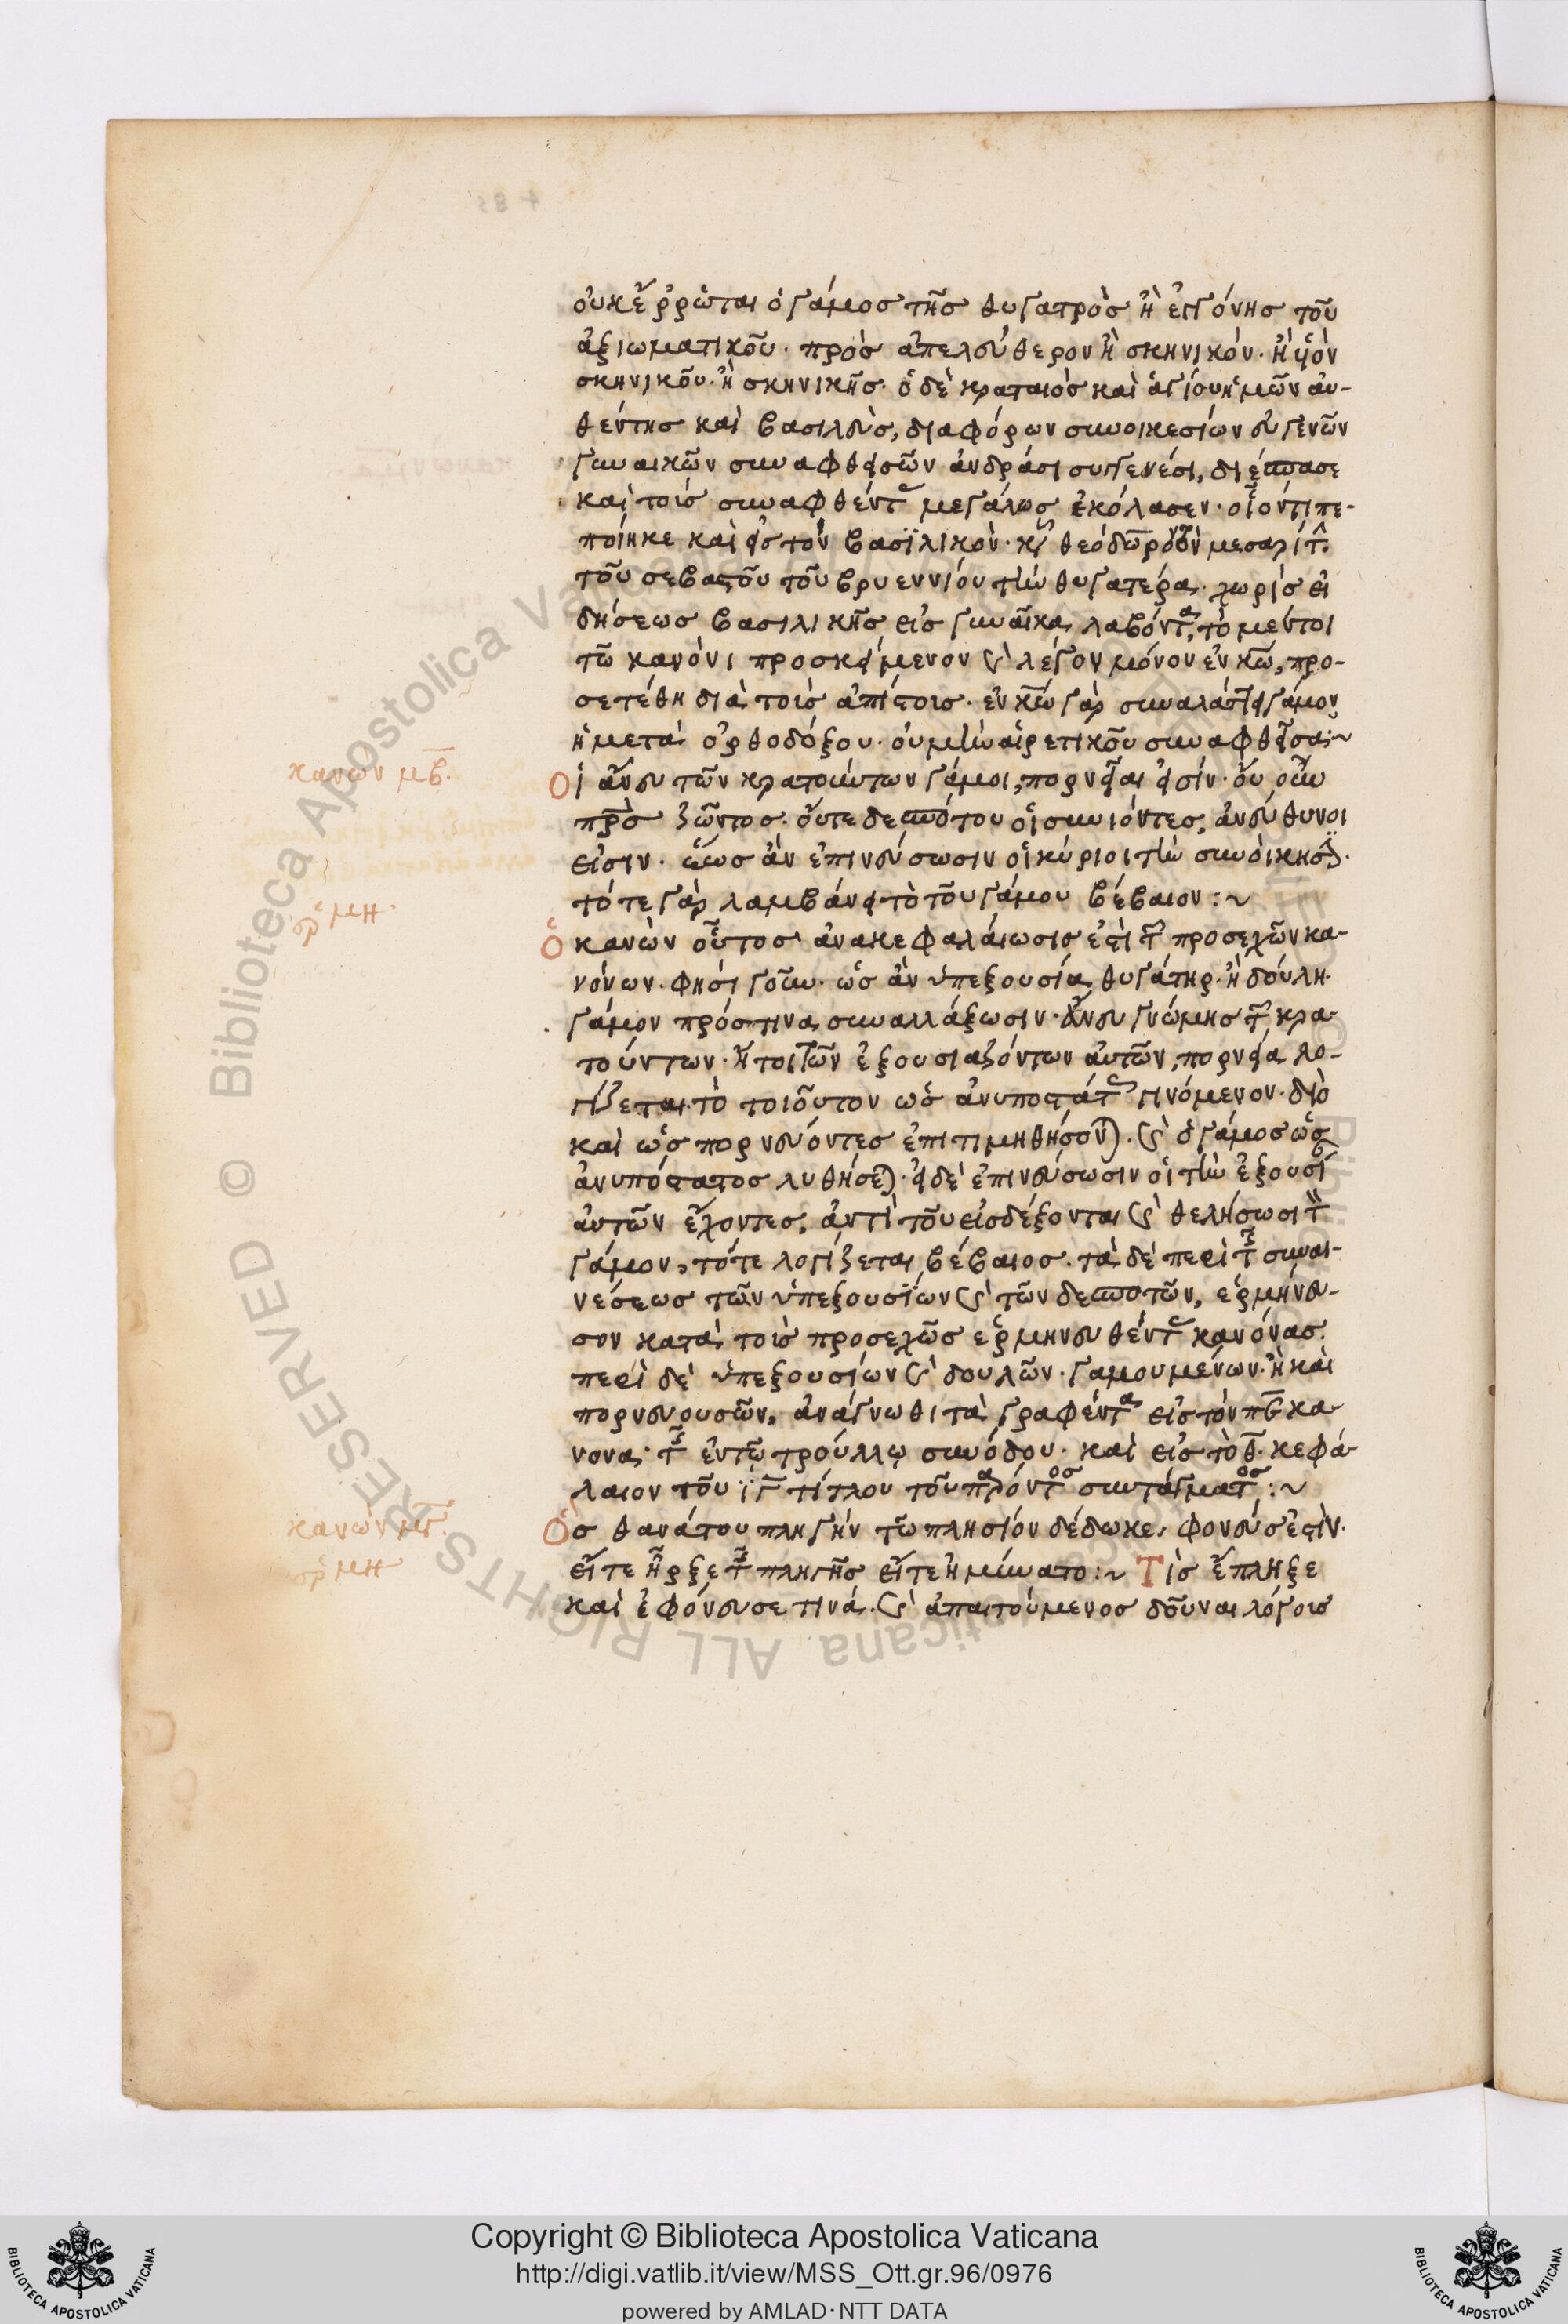 οὐκ ἔρρωται ὁ γάμος τῆς θυγατρὸς ἢ ἐγγόνης τοῦ
ἀξιωματικοῦ· πρὸς ἀπελεύθερον ἢ σκηνικόν· ἢ υἱὸν
σκηνικοῦ· ἢ σκηνικῆς· ὁ δὲ κραταιὸς καὶ ἅγιος ἡμῶν αὐ-
θέντης καὶ βασιλεὺς, διαφόρων συνοικεσίων εὐγενῶν
γυναικῶν συναφθεισῶν ἀνδράσι συγγενέσι, διέσπασε
καὶ τοὺς συναφθέντας μεγάλως ἐκόλασεν· οἷόν τι πε-
ποίηκε καὶ εἰς τὸν βασϊλικὸν· κυρ θεόδωρον τὸν μεσαρίτ
τοῦ σεβαστοῦ τοῦ βρυεννίου τὴν θυγατέρα χωρὶς εἰ
δήσεως βασιλικῆς εἰς γυναῖκα λαβόντα, τὸ μέντοι
τῶ κανόνι προσκείμενον καὶ λέγον μόνον ἐν κῶ, προ-
σετέθη διὰ τοὺς ἀπίστους· ἐν κῶ γὰρ συναλάττει γάμον
ἡ μετὰ ὀρθοδόξου· οὐ μὴν αἱρετικοῦ συναφθεῖσα:~
κανὼν μβ.
Οἱ ἄνευ τῶν κρατούντων γάμοι, πορνεῖαί εἰσίν· οὔ οὖν
πρς ζῶντος· οὔτε δεσπότου οἱ συνιόντες, ἀνεύθυνοί
εἰσιν· ἕως ἂν ἐπινεύσωσιν οἱ κύριοι τὴν συνοίκησιν·
τότε γὰρ λαμβάνει τὸ τοῦ γάμου βέβαιον:~
ἑρμη·
Ὁ κανὼν οὗτος ἀνακεφαλάιωσις ἐστὶ τῶν προσεχῶν κα-
νόνων· φησὶ γοῦν· ὡς ἂν ὑπεξουσία θυγάτηρ· ἢ δούλη·
γάμον πρός τινα συναλλάξωσιν· ἄνευ γνώμης τῶν κρα-
τούντων· ἤτοι τῶν ἐξουσιαζόντων αὐτῶν, πορνεία λο-
γίζεται τὸ τοιοῦτον ὡς ἀνυποστάτως γινόμενον· διὸ
καὶ ὡς πορνεύοντες ἐπιτιμηθήσονται. καὶ ὁ γάμος ὡς
ἀνυπόστατος λυθήσεται· εἰ δὲ ἐπινεύσωσιν οἱ τὴν ἐξουσίαν
αὐτῶν ἔχοντες, ἀντὶ τοῦ εἰσδέξονται καὶ θελήσωσι τὸν
γάμον, τότε λογίζεται βέβαιος. τὰ δὲ περὶ τῆς συναι-
νέσεως τῶν ὑπεξουσΐων καὶ τῶν δεσποτῶν, ἑρμήνευ-
σον κατὰ τοὺς προσεχῶς ἑρμηνευθέντας κανόνας.
περὶ δὲ ὑπεξουσίων καὶ δουλῶν· γαμουμένων· ἢ καὶ
πορνευουσῶν, ἀνάγνωθι τὰ γραφέντα εἰς τὸν κα-
νονα· τῆς ἐν τῶ τρούλλῳ συνόδου· καὶ εἰς τὸ θ. κεφά-
λαιον τοῦ ιγ τίτλου τοῦ παρόντος συντάγματος:~
κανὼν μγ.
Ὁς θανάτου πληγὴν τῶ πλησίον δέδωκε, φονεύς ἐστὶν·
εἴτε ἦρξε τῆς πληγῆς εἴτε ἠμύνατο:~ Τὶς ἔπληξε
ἑρμη
καὶ ἐφόνευσε τινά. καὶ ἀπαιτούμενος δοῦναι λόγους
Copyright © Biblioteca Apostolica Vaticana
http://digi.vatlib.it/view/MSS_Ott.gr.96/0976
powered by AMLAD·NTT DATA